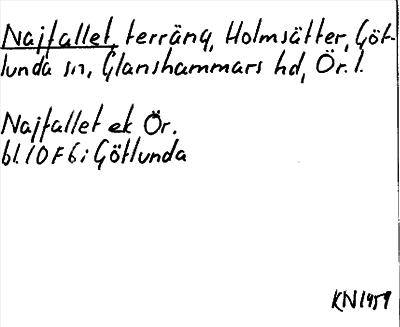 Najfallet, terräng, Holmsätter, Göt-
lunda sn, Glanshammars hd, Ör. l.
Najfallet ek Ör.
bl. 10 F 6 i Götlunda
KN 1959